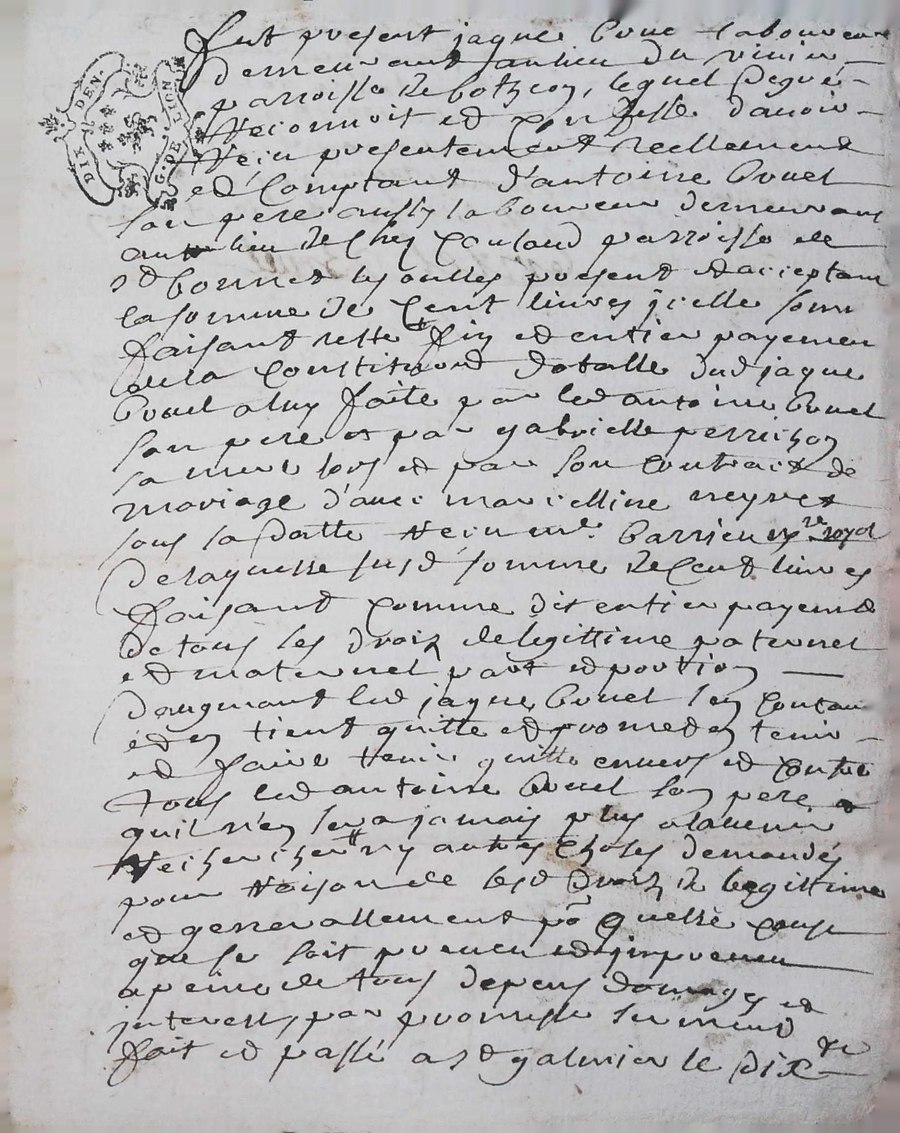 DIX DEN.
G. DE LION
fut present jaque bouel laboureur
demeurant au lieu du
parroisse de botheon, lequel de gré
reconnoit et confesse d'avoir
receu presentement reellement
et comptant d'antoine bouel
son pere aussy laboureur demeurant
au lieu de chez parroisse de
st bonnet les oulles present et acceptant
la somme de cent livres icelle somme
faisant reste fin et entier payement
de la constitution dotalle dud jaque
bouel a luy faite par led antoine bouel
son pere et par gabrielle perrichon
sa mere lors et par son contrait de
mariage d'avec marcelline neyret
sous sa datte receu me barrieu nre royal
de laquelle susd somme de cent livres
faisant comme dit entier payement
de tous les droiz de legittime paternel
et maternel part et portion
d'augmant led jaque bouel s'en contante
et en tient quitte et promet en tenir
et faire tenir quitte envers et contre
tous led antoine bouel son pere
qu'il n'en sera jamais plus a l'avenir
recherché ny autres choses demandés
pour raison de lesd droiz de legittime
et generallement po quelle cause
que se soit preveu et impreveu
a peine de tous depens domages et
interests par promesse serment
fait et passé a st galmier le dix